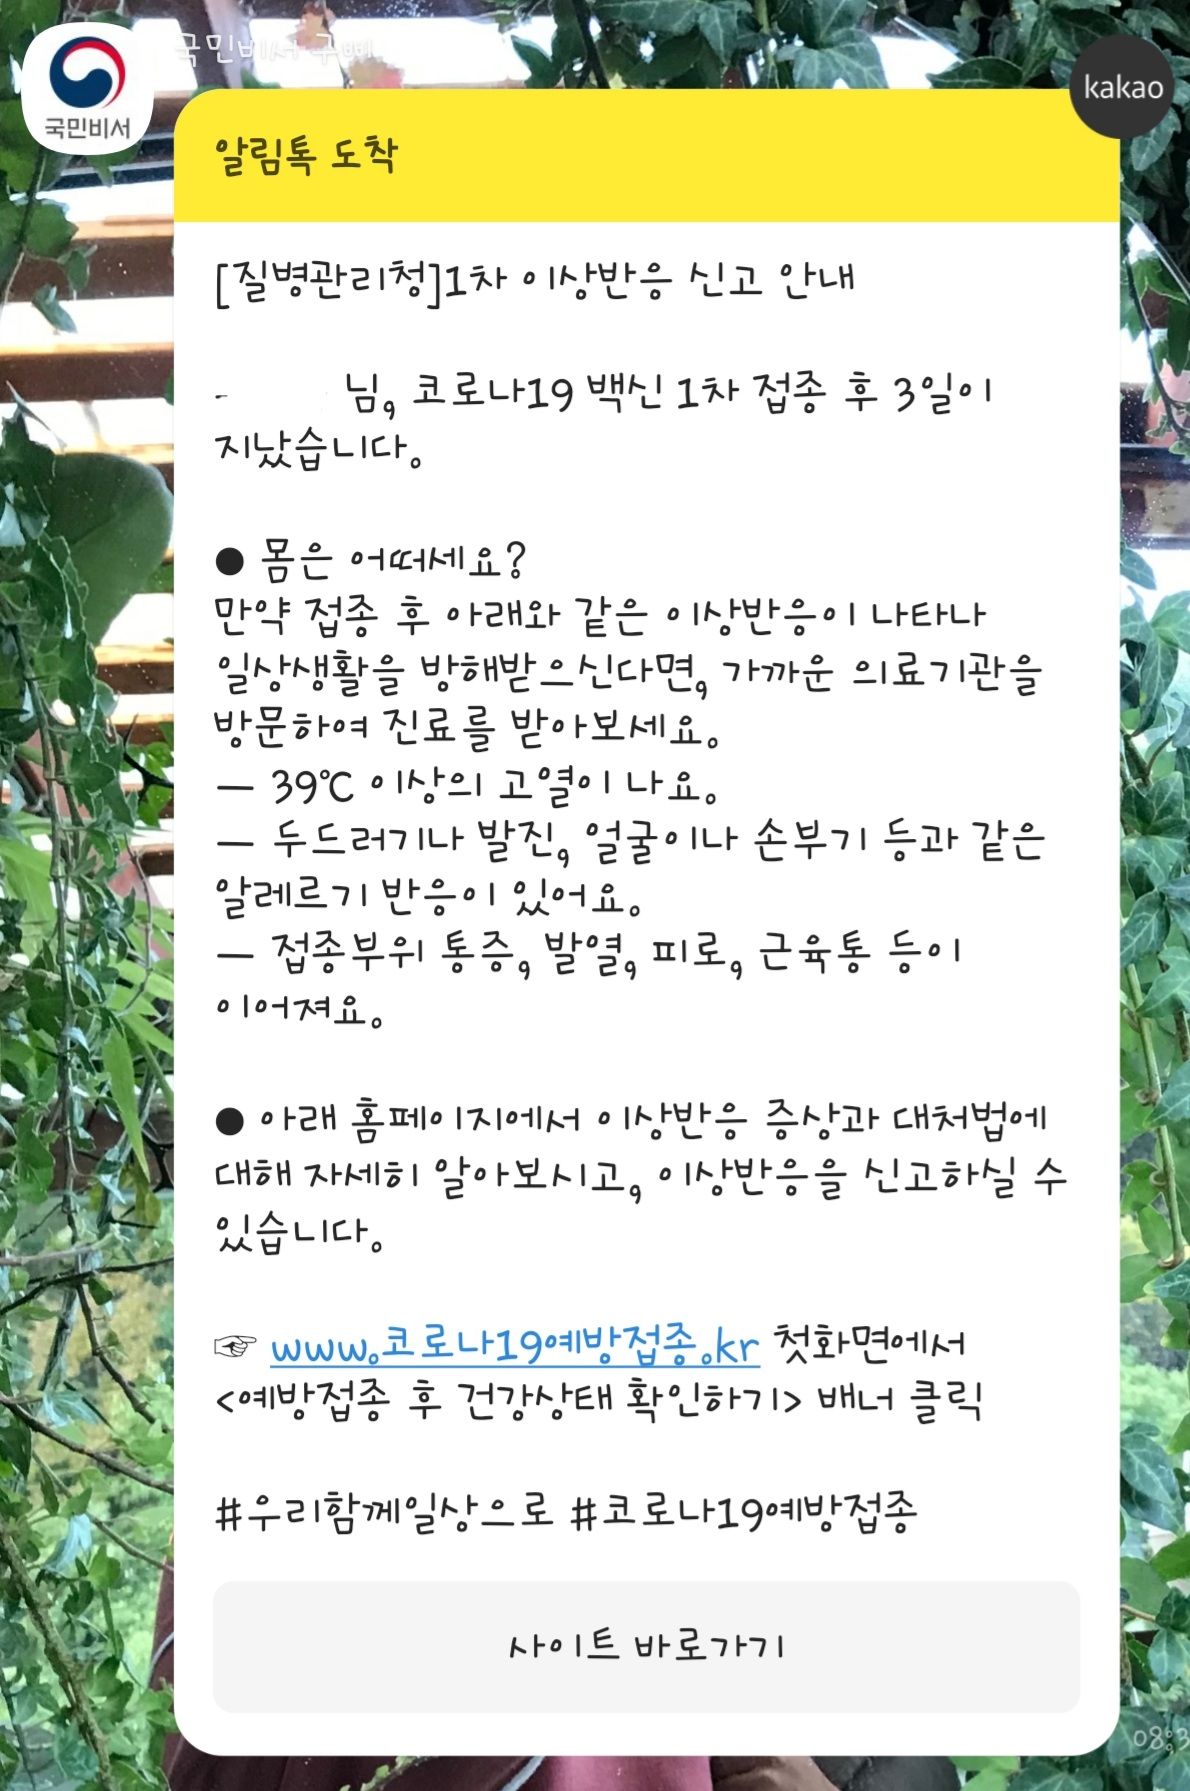 국민비서 구삐
국민비서
kakao
알림톡 도착
[질병관리청]1차 이상반응 신고 안내
님, 코로나19 백신 1차 접종 후 3일이
지났습니다.
● 몸은 어떠세요?
만약 접종 후 아래와 같은 이상반응이 나타나
일상생활을 방해받으신다면, 가까운 의료기관을
방문하여 진료를 받아보세요.
— 39℃ 이상의 고열이 나요.
— 두드러기나 발진, 얼굴이나 손부기 등과 같은
알레르기 반응이 있어요.
— 접종부위 통증, 발열, 피로, 근육통 등이
이어져요.
● 아래 홈페이지에서 이상반응 증상과 대처법에
대해 자세히 알아보시고, 이상반응을 신고하실 수
있습니다.
☞ www.코로나19예방접종.kr 첫화면에서
<예방접종 후 건강상태 확인하기> 배너 클릭
#우리함께일상으로 #코로나19예방접종
사이트 바로가기